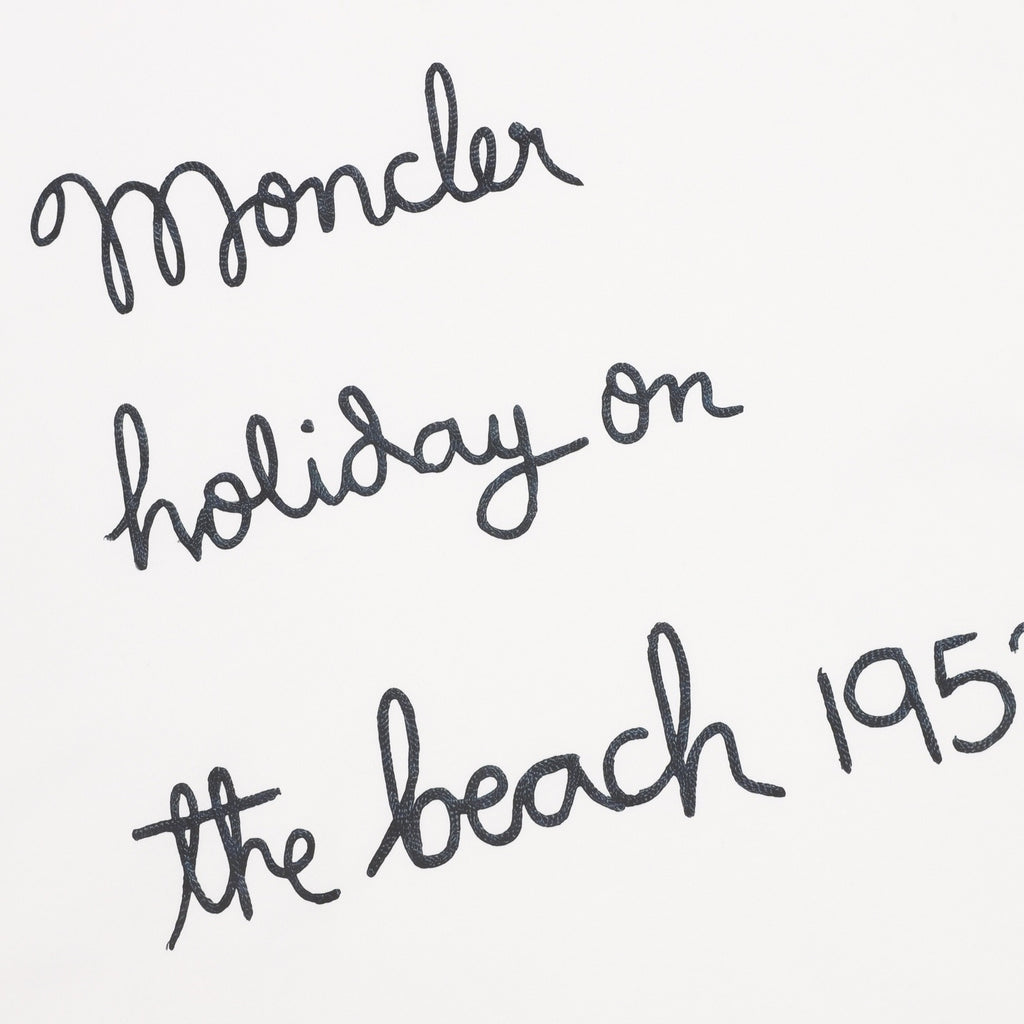 Moncler
holiday on
the beach 195